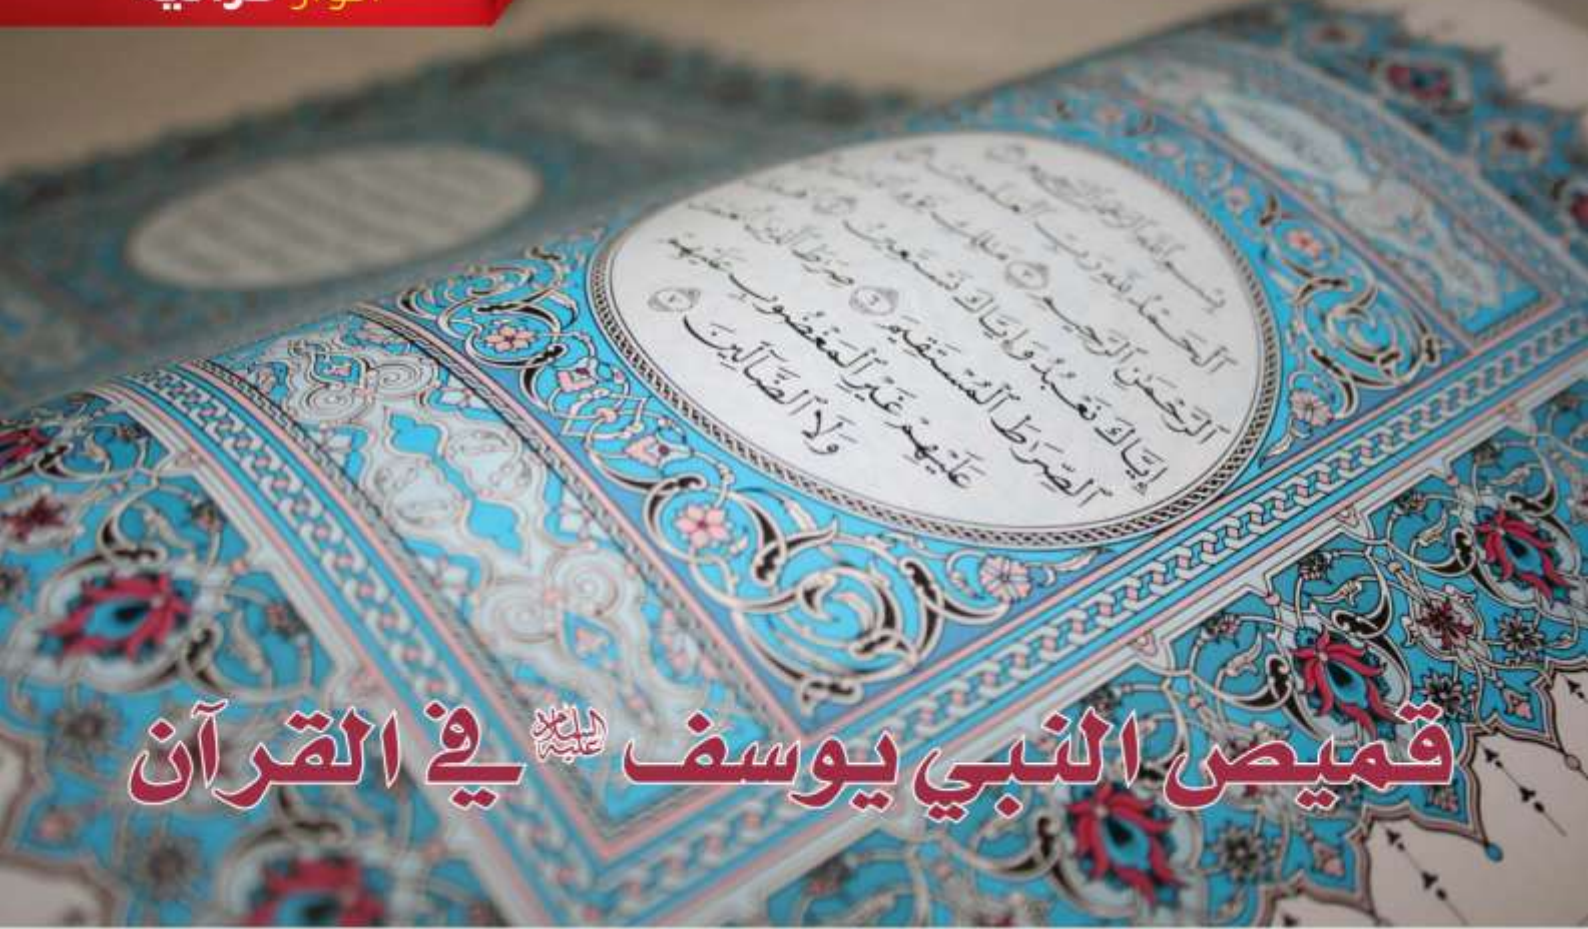 بِسْمِ اللَّهِ الرَّحْمَٰنِ الرَّحِيمِ
اَلْحَمْدُ لِلَّهِ رَبِّ الْعَالَمِينَ
اَلرَّحْمَٰنِ الرَّحِيمِ مَالِكِ يَوْمِ
إِيَّاكَ نَعْبُدُ وَإِيَّاكَ نَسْتَعِينُ
الصِّرَاطَ الْمُسْتَقِيمَ صِرَاطَ الَّذِينَ أَنْعَمْتَ
عَلَيْهِمْ غَيْرِ الْمَغْضُوبِ عَلَيْهِمْ
وَلَا الضَّالِّينَ
قميص النبي يوسف عليه السلام في القرآن